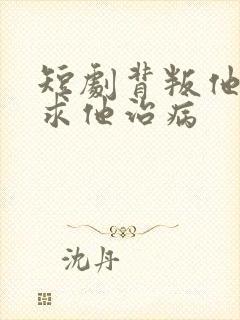 短劇背叛他
求他治病
沈丹